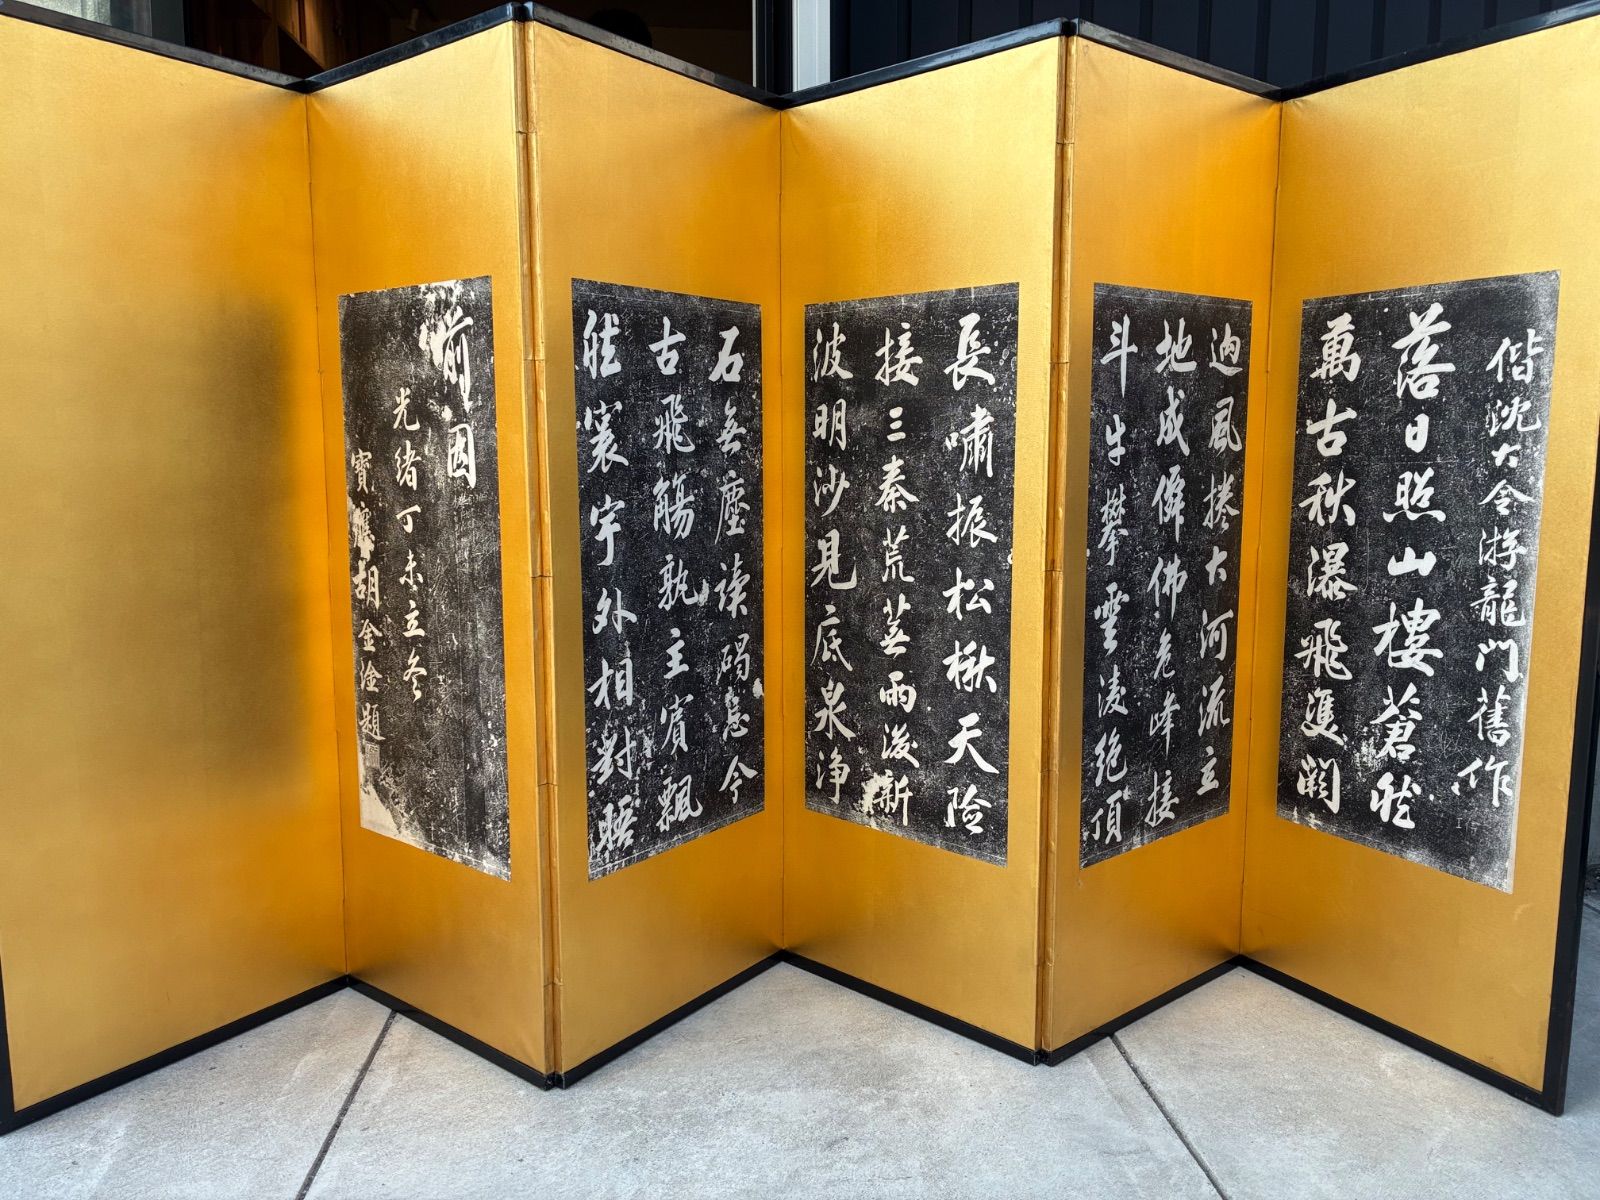 偕沈大令游龍門舊作
落日照山樓蒼然
萬古秋瀑飛雙闕
迥風捲大河流立
地成僊佛危峰接
斗牛攀雲凌絕頂
長嘯振松楸天险
接三秦荒蕪雨後新
波明沙見底泉淨
石無塵读碣悲今
古飛觴孰主賓飄
然寰宇外相對
前因
光緒丁未立冬
寶應胡金淦題